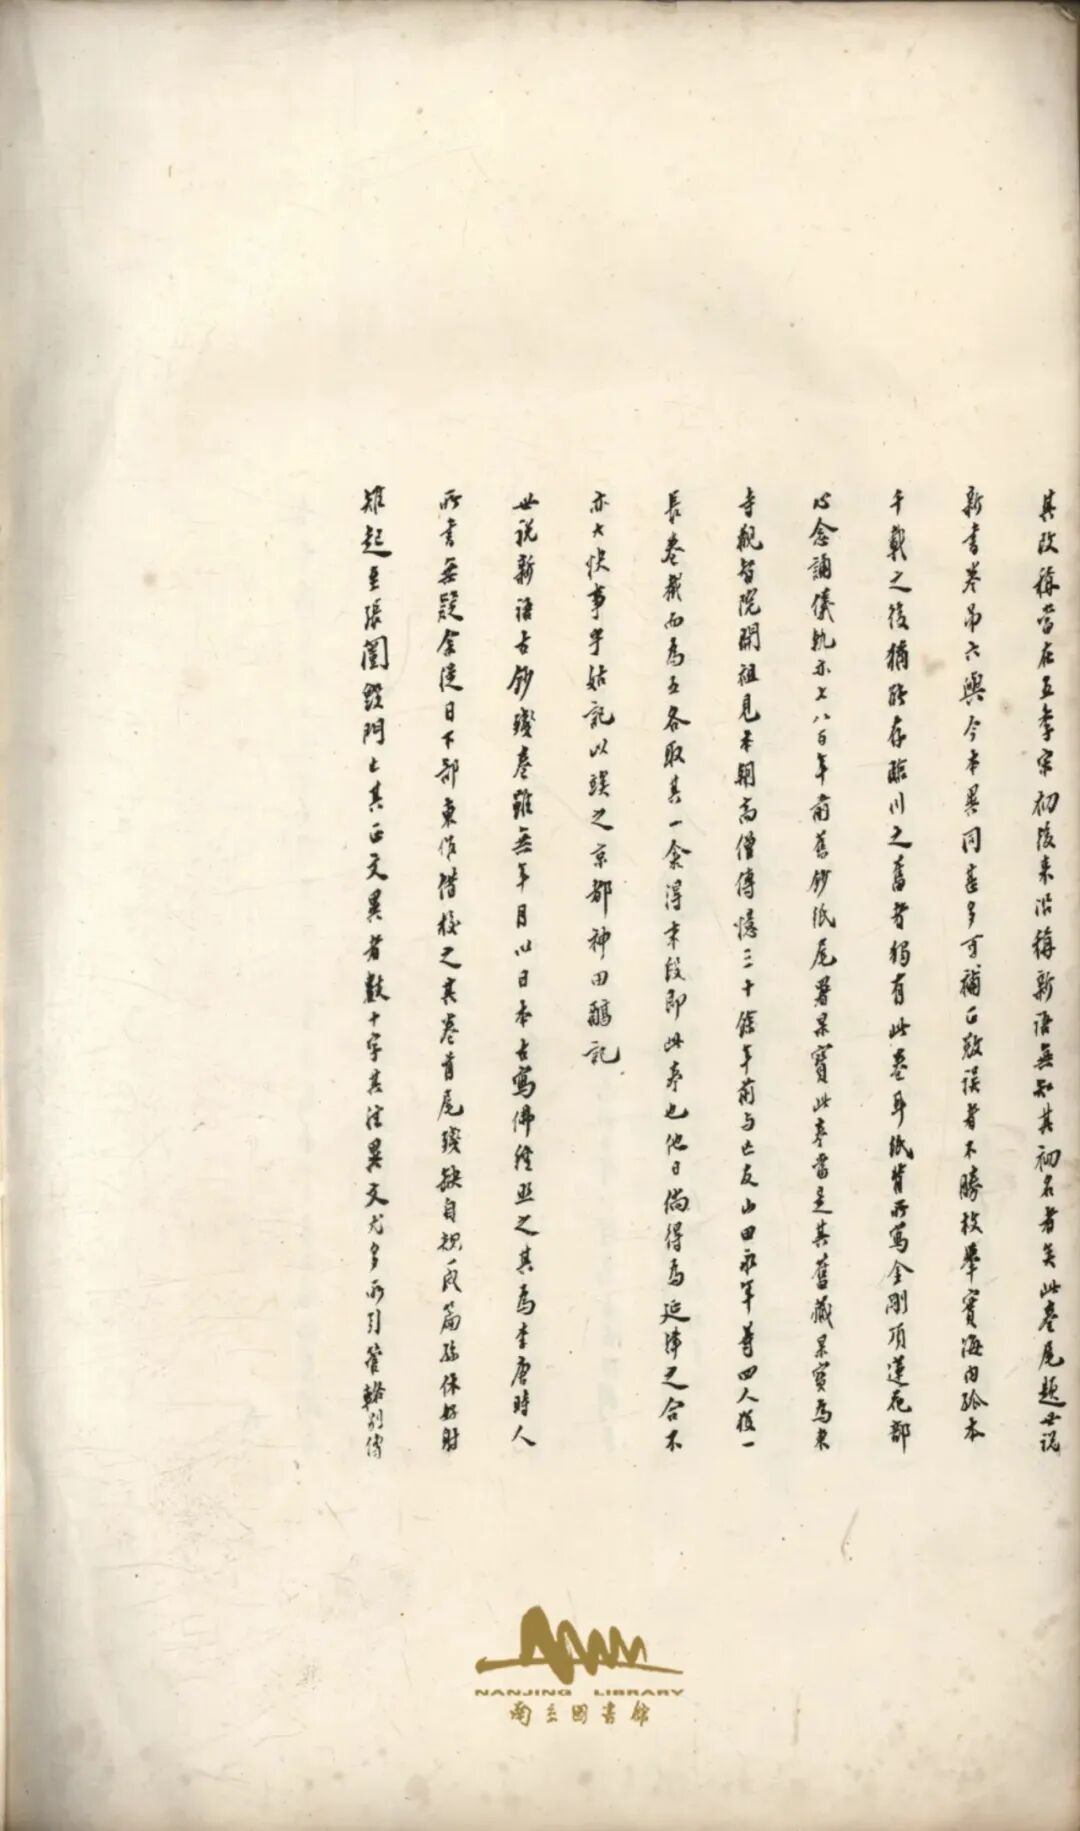 其改稱當在五季宋初後來沿稱新語無知其初名者矣此卷尾題世說
新書卷第六與今本異同甚多可補正敓誤者不勝枚舉實海内孤本
千載之後猶能存臨川之舊者獨有此卷耳紙背所寫金剛項蓮花部
心念誦儀軌亦七八百年前舊鈔紙尾署杲寶此卷當是其舊藏杲寶為東
寺觀智院開祖見本朝高僧傳憶三十餘年前與亡友山田永年等四人獲一
長卷截而為五各取其一余得末段即此卷也他日倘得為延津之合不
亦大快事乎姑記以竢之京都神田醕記
世說新語古鈔殘卷雖無年月以日本古寫佛經照之其為李唐時人
所書無疑余從日下部東作借校之其卷首尾殘缺自規箴篇孫休好射
雉起至張闓毀門止其正文異者數十字其注異文尤多所引管輅別傳
NANJING LIBRARY
南京圖書館